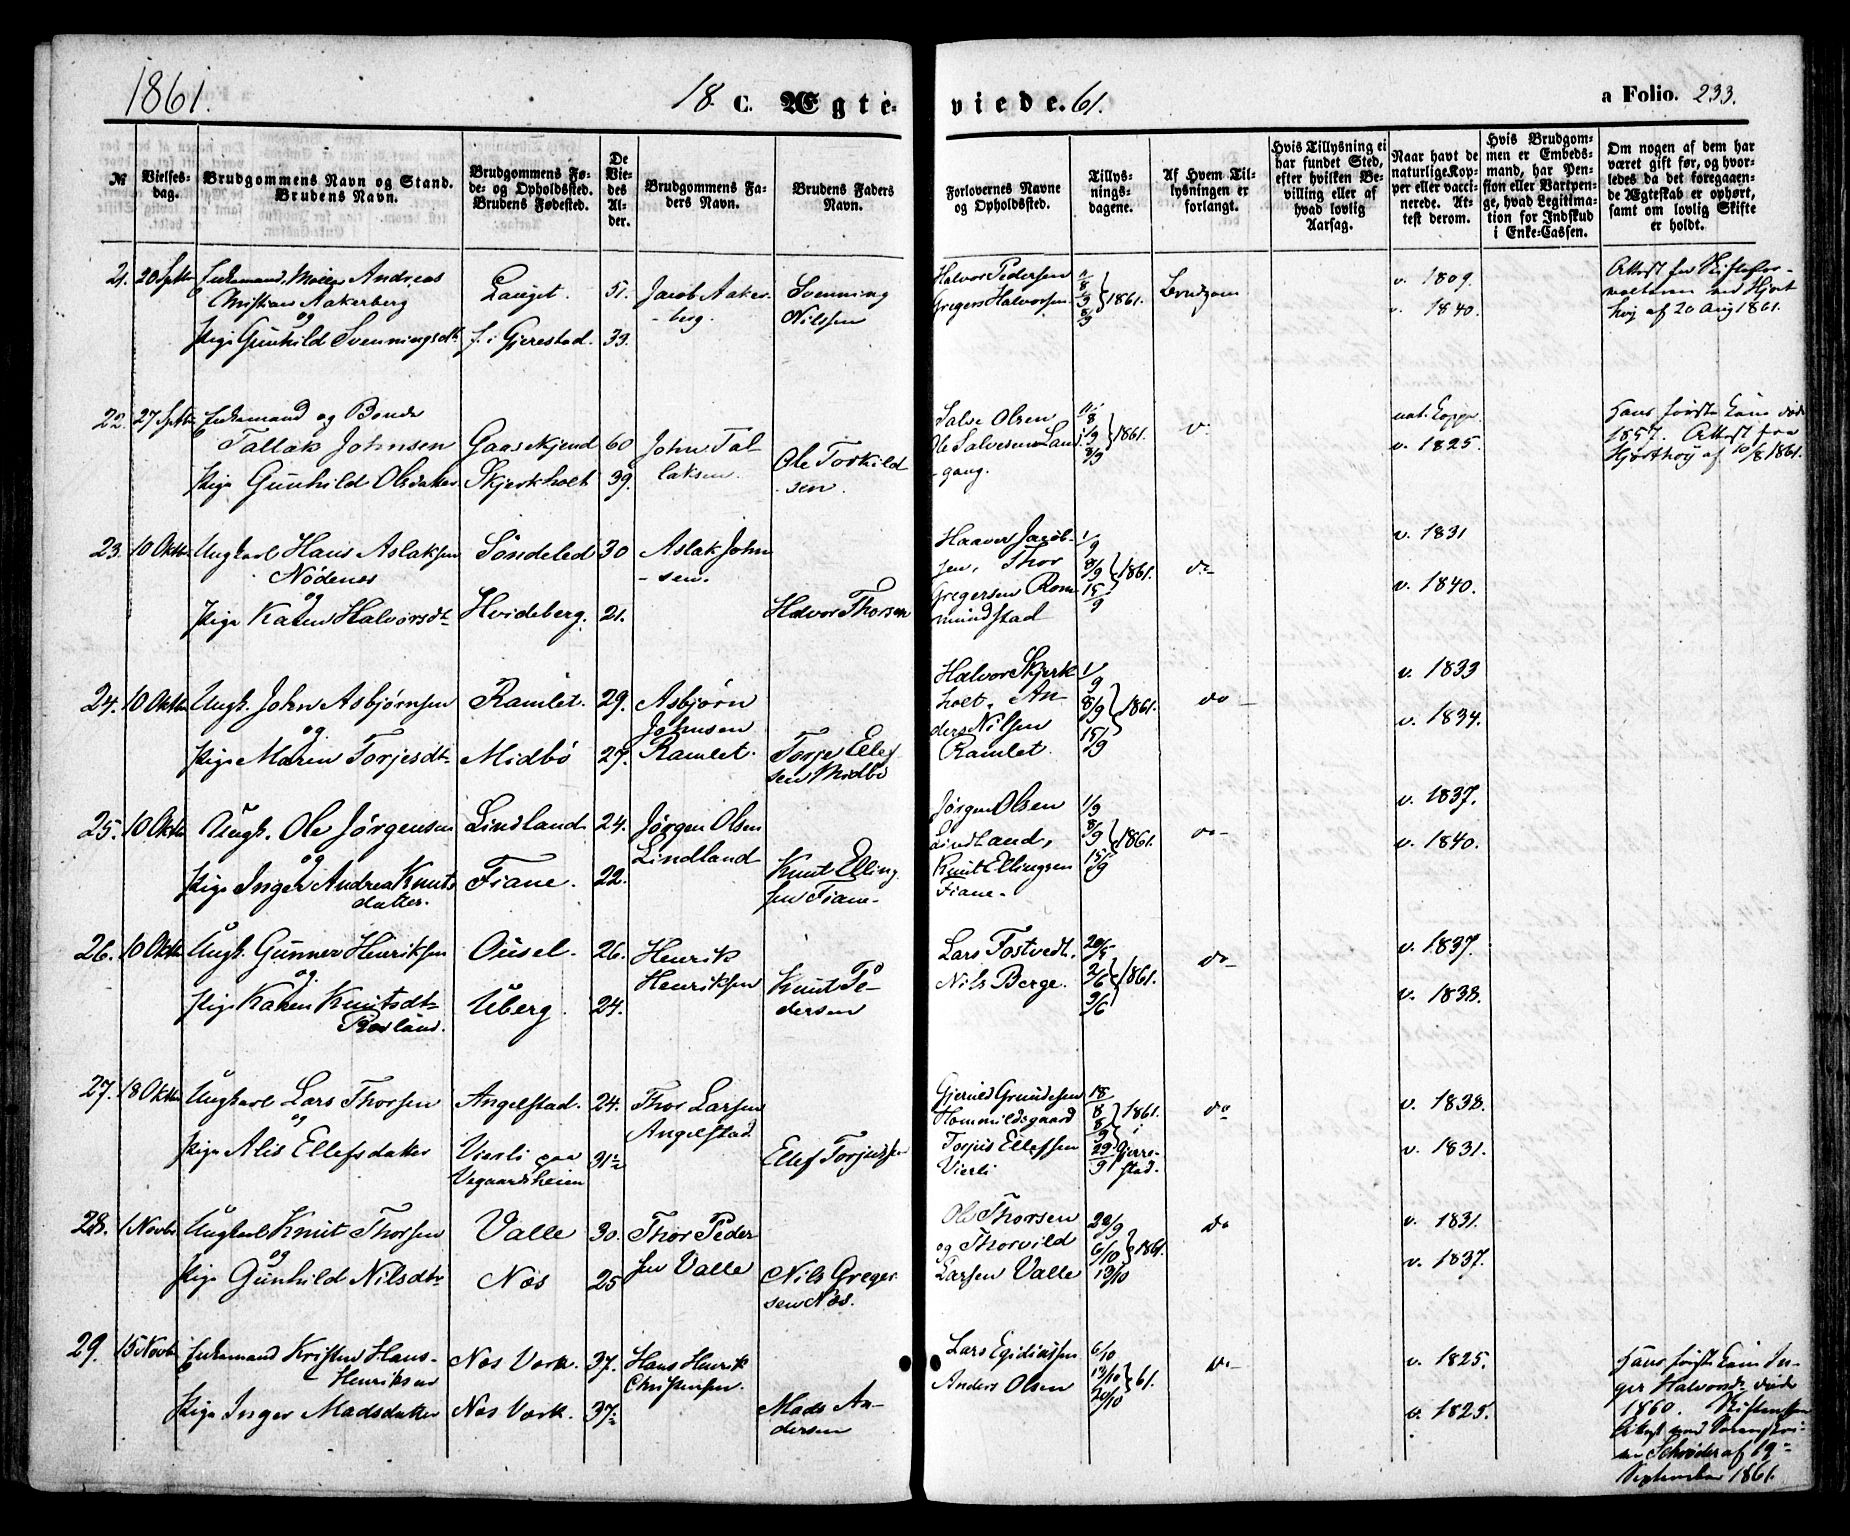 1861.
18 C. Ægte-
viede. 61.
a Folio. 233.
№
Vielses-
dag.
Brudgommens Navn og Stand.
Brudens Navn.
Brudgommens Fø-
de- og Opholdssted.
Brudens Fødested.
De
Vie-
des
Al-
der.
Brudgommens Fa-
ders Navn.
Brudens Faders
Navn.
Forlovernes Navne
og Opholdssted.
Tillys-
nings-
dagene.
Af Hvem Til-
lysningen er
forlangt.
Hvis Tillysning ei
har fundet Sted,
efter hvilken Be-
villing eller af
hvad lovlig
Aarsag.
Naar havt de
naturlige Kop-
per eller vacci-
nerede. At-
test derom.
Hvis Brudgom-
men er Embeds-
mand, har Pen-
sion eller Vartpen-
ge, hvad Legitima-
tion for Indskud
i Enke-Cassen.
Om nogen af dem har
været gift før, og hvor-
ledes da det foregaaen-
de Ægteskab er ophørt,
samt om lovlig Skifte
er holdt.
21. 20 Septbr Enkemand Andreas
Christian Aakerberg
og
Pige Gunhild Svenningsdtr
Lauget. 51.
f. i Gjerestad. 33.
Jacob Aaker-
berg.
Svenning
Nilssen
Halvor Pedersen
Gregers Halvorsen
1861.
Brudgom
v. 1809.
v. 1840.
Attest fra Skiftefor-
valteren ved Hjort
høj af 20 Aug 1861.
22. 27 Septbr Enkemand og Bonde
Tallak Johnsen
Pige Gunhild Olsdatter
Gaaseskjend 60
Skjerkholt 39.
John Tal-
laksen.
Ole Torkild
sen.
Salve Olsen
Ole Salvesen Lan-
gang.
1861.
do
nat. Kopper
v. 1825.
Hans første Kone døde
1857. Attest fra
Hjorthøj af 10/8 1861.
23. 10 Oktbr Ungkarl Hans Aslaksen
Nödenes
og
Pige Karen Halvorsdtr
Söndeled 30
Hvideberg. 21.
Aslak John
-sen.
Halvor Thorsen
Haaver Jacob-
sen, Thor
Gregersen Rom
mundstad
1/9
8/9
15/9
1861.
do
v. 1831
v. 1840.
24. 10 Oktbr Ungk. John Asbjørnsen
og
Pige Maren Torjesdtr
Ramlet. 29.
Midbö 27.
Asbjörn
Johnsen
Ramlet.
Torje Ellef
sen Midbö
Halvor Skjerk
holt. An-
ders Nilsen
Ramlet.
1/9
8/9
15/9
1861.
do
v. 1833
v. 1834.
25. 10 Oktbr Ungk. Ole Jørgensen
og
Pige Inger Andrea Knuts
datter.
Lindland 24.
Fiane. 22.
Jörgen Olsen
Lindland
Knut Elling
sen Fiane
Jørgen Olsen
Lindland,
Knut Ellingsen
Fiane.
1/9
8/9
15/9
1861.
do
v. 1837.
v. 1840.
26. 10 Oktbr Ungk. Gunner Henriksen
og
Pige Karen Knutsdtr
Røsland.
Ousel. 26.
Uberg. 24.
Henrik
Henriksen
Knut Pe-
dersen
Lars Fostvedt.
Nils Berge.
2/6
9/6
1861.
do
v. 1837.
v. 1838.
27. 18 Oktbr Ungkarl Lars Thorsen
og
Pige Alis Ellefsdatter
Angelstad. 24.
Vierli paa
Vegaardsheien 31½
Thor Larsen
Angelstad
Ellef Torjussen
Gjeruld Grundesen
Hommildsgaard
Torjus Ellefssen
Vierli
18/8
8/9
29/9
1861.
i
Gjerre-
stad.
do
v. 1838.
v. 1831.
28. 1 Novbr Ungkarl Knut Thorsen
og
Pige Gunhild Nilsdtr
Valle 30.
Næs 25
Thor Peder
sen Valle
Nils Greger
sen Næs.
Ole Thorsen
og Thorvild
Larsen Valle
6/10
13/10
1861.
do
v. 1831.
v. 1837.
29. 15 Novbr Enkemand Kristen Hans
Henriksen
Pige Inger Madsdatter
Næs Værk. 37.
Næs Værk. 37½
Hans Henrik
Christensen.
Mads An-
dersen
Lars Egidiussen
Anders Olsen
6/10
13/10
20/10
61.
do
v. 1825.
v. 1825.
Hans første Kone In-
ger Halvorsd. døde
1860.
Schrøder af 19
September 1861.